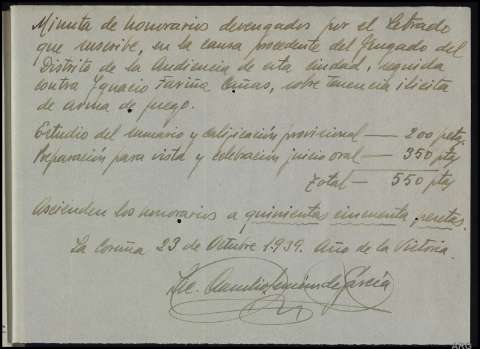 Minuta de honorarios devengados por el Letrado
que suscribe, en la causa procedente del Juzgado del
Distrito de la Audiencia de esta ciudad, seguida
contra Ignacio Fariña sobre tenencia ilicita
de arma de fuego.
Estudio del sumario y calificación provisional — 200 ptas.
Preparación para vista y celebración juicio oral — 350 ptas
Total — 550 ptas
Ascienden los honorarios a quinientas cincuenta pesetas.
La Coruña 23 de Octubre 1.939. Año de la Victoria.
Lic. Claudio de García
ARG